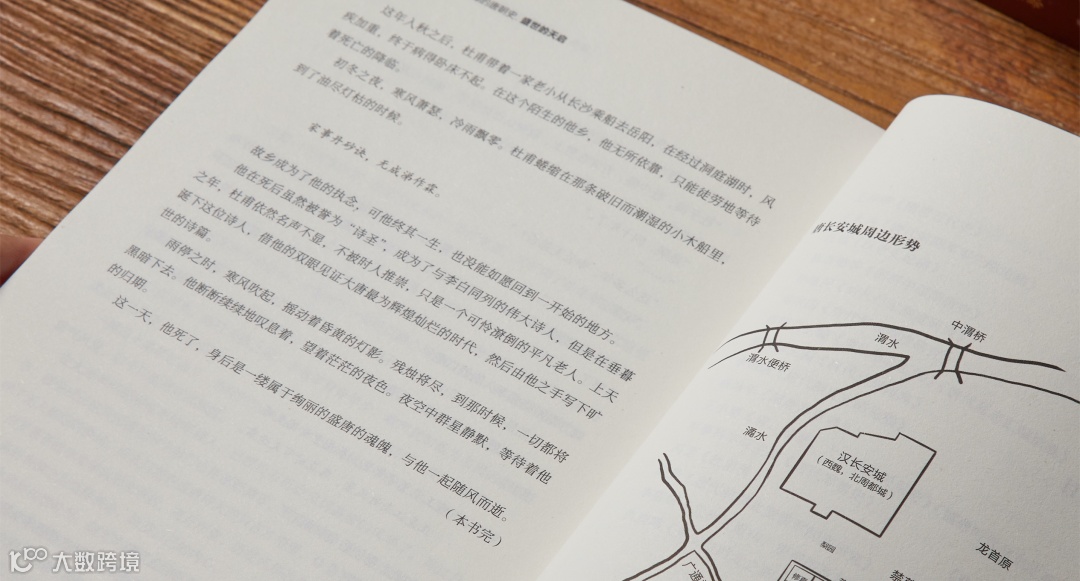 的唐朝史 盛世的天启
这年入秋之后，杜甫带着一家老小从长沙乘船去岳阳，在经过洞庭湖时，风
疾加重，终于病得卧床不起。在这个陌生的他乡，他无所依靠，只能徒劳地等待
着死亡的降临。
初冬之夜，寒风萧瑟，冷雨飘零。杜甫蜷缩在那条破旧而潮湿的小木船里，
到了油尽灯枯的时候。
家事丹砂诀，无成涕作霖。
故乡成为了他的执念，可他终其一生，也没能如愿回到一开始的地方。
他在死后虽然被誉为“诗圣”，成为了与李白同列的伟大诗人，但是在垂暮
之年，杜甫依然名声不显，不被时人推崇，只是一个可怜潦倒的平凡老人。上天
诞下这位诗人，借他的双眼见证大唐最为辉煌灿烂的时代，然后由他之手写下旷
世的诗篇。
雨停之时，寒风吹起，摇动着昏黄的灯影。残烛将尽，到那时候，一切都将
黑暗下去。他断断续续地叹息着，望着茫茫的夜色。夜空中群星静默，等待着他
的归期。
这一天，他死了，身后是一缕属于绚丽的盛唐的魂魄，与他一起随风而逝。
（本书完）
长安城周边形势
中渭桥
渭水
渭水便桥
潏水
汉长安城
（西魏、北周都城）
梨园
龙首原
禁苑
广通
大数跨境